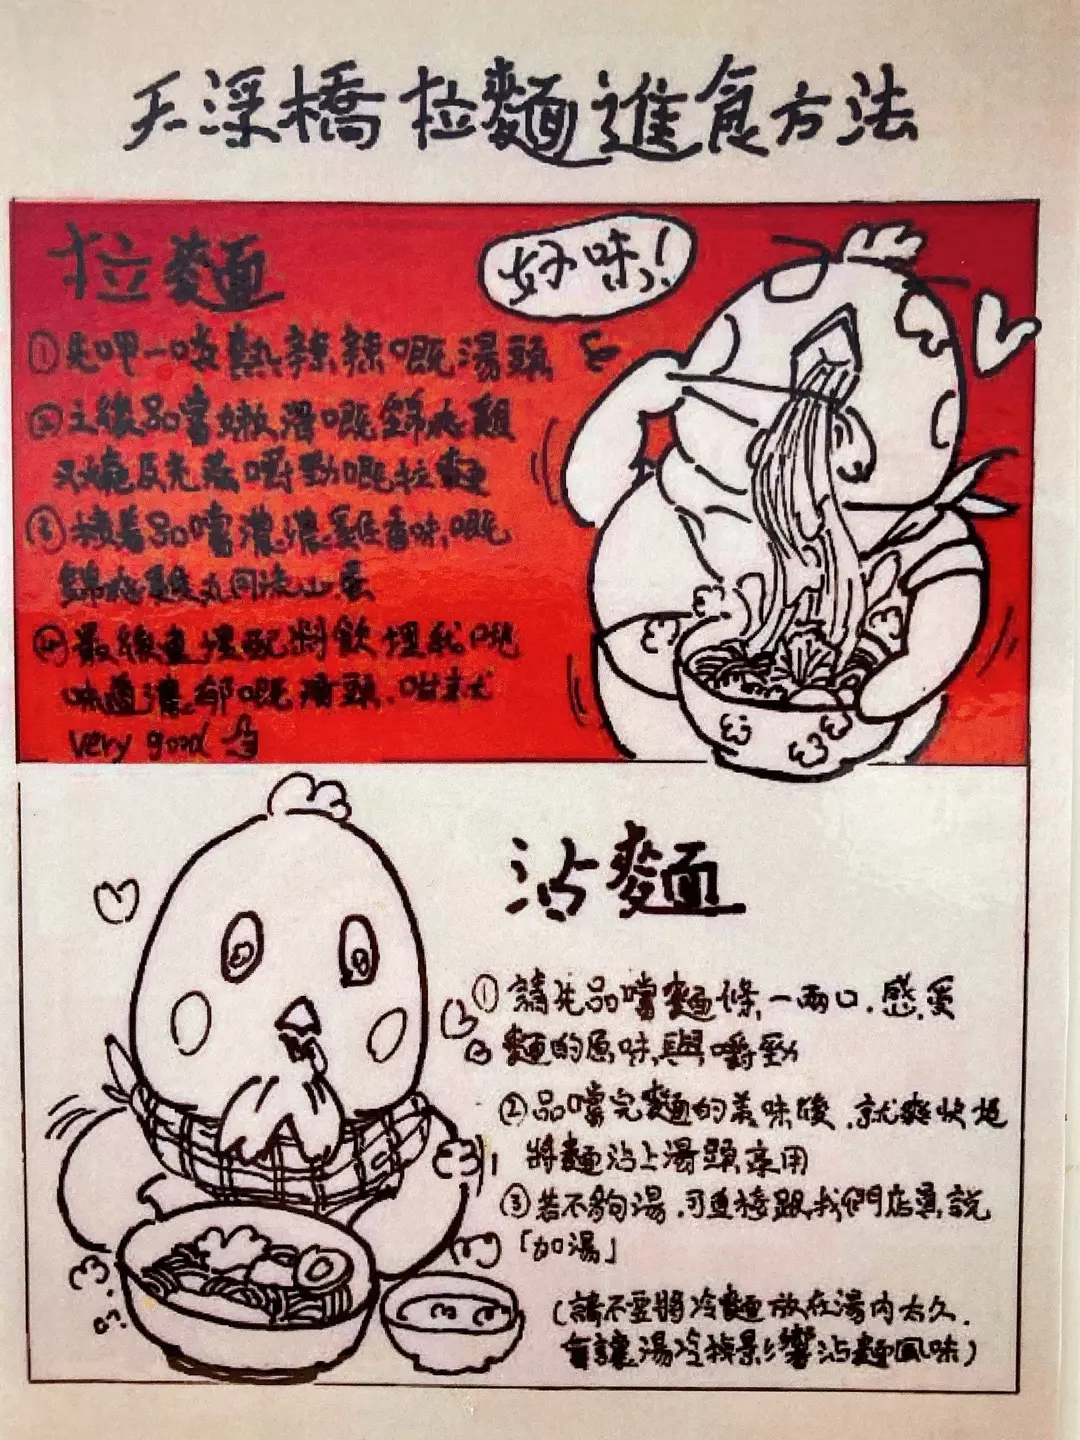 天深橋拉麵進食方法
拉麵
好味!
①先呷一啖熱辣辣嘅湯頭
②之後品嘗嫩滑嘅錦繡雞
叉燒及充滿嚼勁嘅拉麵
③接着品嚐濃濃雞香味嘅
錦繡雞丸同流心蛋
④最後食埋配料飲埋我哋
味道濃郁嘅湯頭.咁就
very good
沾麵
①請先品嚐麵條一兩口.感受
麵的原味與嚼勁
②品嚐完麵的美味後.就爽快地
將麵沾上湯頭享用
③若不夠湯.可直接跟我們店員說
「加湯」
(請不要將冷麵放在湯內太久.
會讓湯冷掉影響沾麵風味)